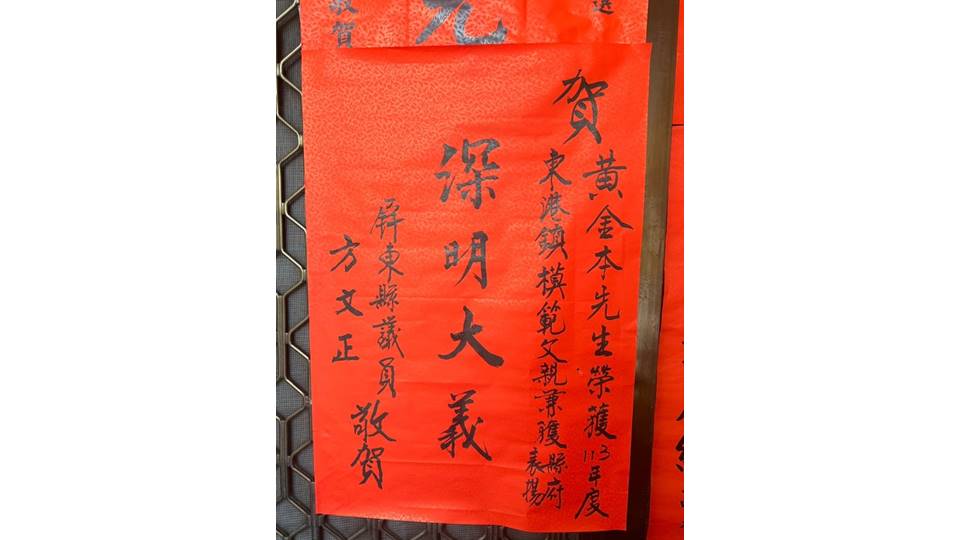 賀
黃金本先生榮獲113年度
東港鎮模範父親兼獲縣府
表揚
深明大義
屏東縣議員
方文正
敬賀
敬賀
元
選